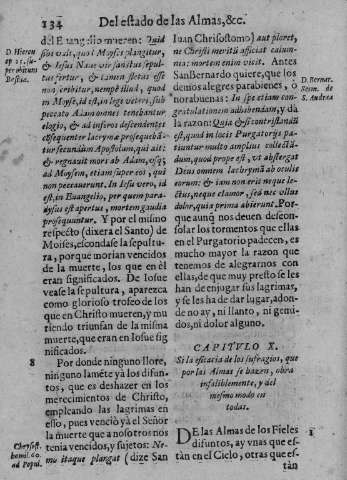 134 Del estado de las Almas, &c.
del Euangelio mueren: Quid
sibi vult, quòd Moyses plangitur,
& Iesus Naue vir sanctus sepul-
tus fertur, & tamen fletus esse
non scribitur, nempe illud, quod
in Moyse, id est, in lege veteri, sub
peccato Adam omnes tenebantur
elogio, & ad inferos descendentes
consequenter lacrymæ prosequebã-
tur secundùm Apostolum, qui ait:
& regnauit mors ab Adam, vsq;
ad Moysem, etiam super eos, qui
non peccauerunt. In Iesu vero, id
est, in Euangelio, per quem para-
dysus est apertus, mortem gaudia
prosequuntur. Y por el mismo
respeto (dixera el Santo) de
Moises, escondase la sepultu-
ra, porque morian vencidos
de la muerte, los que en èl
eran significados. De Iosue
vease la sepultura, aparezca
como glorioso trofeo de los
que en Christo mueren, y mu-
riendo triunfan de la misma
muerte, que eran en Iosue sig
nificados.
Por donde ninguno llore,
ninguno lamẽte ya los difun-
tos, que es deshazer en los
merecimientos de Christo,
empleando las lagrimas en
esso, pues venciò yà el Señor
la muerte que a nosotros nos
tenia vencidos: Ne-
mo itaque plangat (dize San
D. Hieron
ep 25. su-
per obitum
Blesillæ.
8
Chrysost.
homil. 60.
ad Popul.
Iuan Chrisostomo) aut ploret,
ne Christi meritũ afficiat calum-
nia: mortem enim vicit. Y antes
San Bernardo quiere, que los
demos alegres parabienes, ò
norabuenas: In spe etiam con-
gratulationem adhibendam, y dà
la razon: Quia & si contristandũ
est, quod in locis Purgatorijs pa-
tiuntur multo amplius collætã-
dum, quod prope est, vt abstergat
Deus omnem lacrymã ab oculis
eorum: & iam non erit neque lu-
ctus, neque clamor, sed nec vllus
dolor, quia prima abierunt. Por-
que aunq̃ nos deuen descon-
solar los tormentos que ellas
en el Purgatorio padecen, es
mucho mayor la razon que
tenemos de alegrarnos con
ellas, de que muy presto se les
han de enjugar sus lagrimas,
y se les ha de dar lugar, adon-
de no ay, ni llanto, ni gemi-
dos, ni dolor alguno.
D. Bernar.
Serm. de
S. Andrea
CAPITVLO X.
Si la eficacia de los sufragios, que
por las Almas se hazen, obra
infaliblemente, y del
mesmo modo en
todas.
DE las Almas de los Fieles
difuntos, ay vnas que es-
tàn en el Cielo, otras que es-
tàn
1